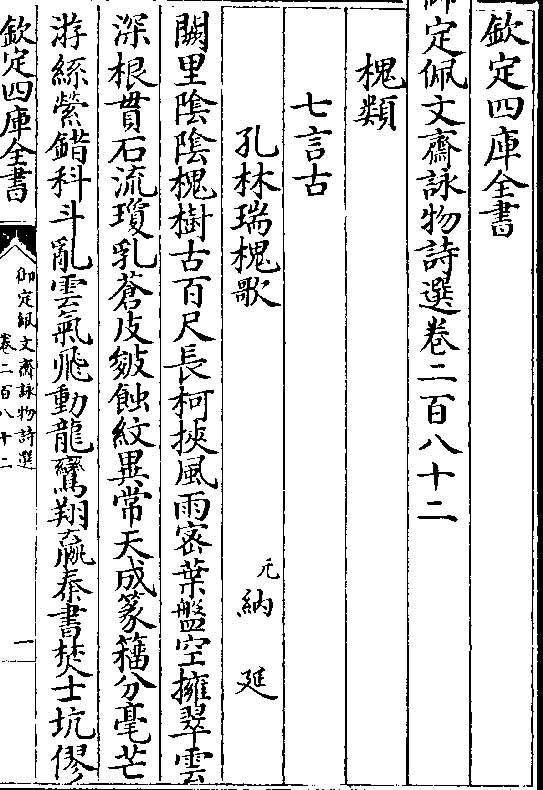 欽定四庫全書
御定佩文齋詠物詩選卷二百八十二
槐類
七言古
孔林瑞槐歌 元納延
闕里陰陰槐樹古百尺長柯挾風雨宻葉盤空擁翠雲
深根貫石流瓊乳蒼皮皴蝕紋異常天成篆籀分毫芒
游絲縈錯科斗亂雲氣飛動龍鸞翔嬴秦書焚士坑僇
欽定四庫全書
御定佩文齋詠物詩選
卷二百八十二
一